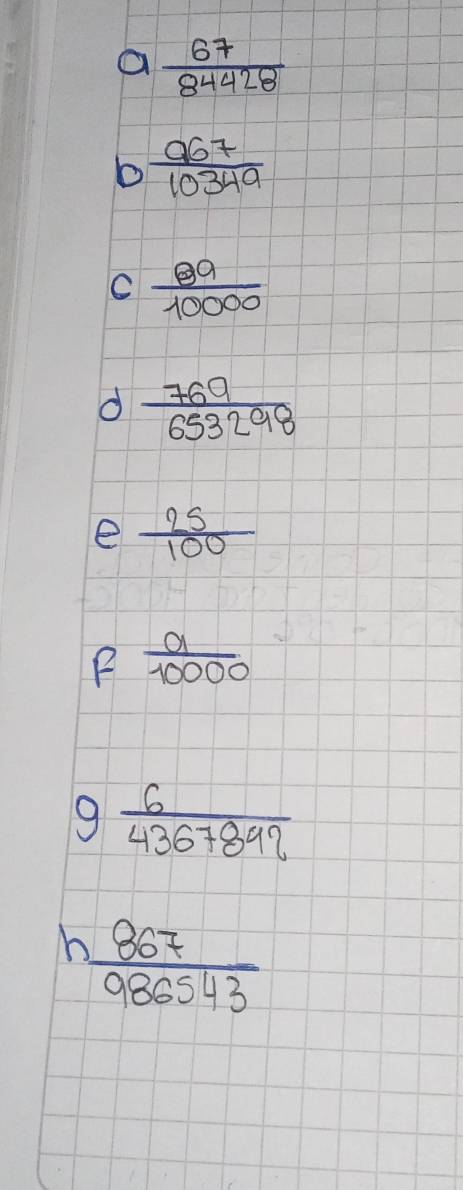 a 67
84428
b 967
10349
c 89
10000
d 769
653298
e 25
100
f 9
10000
g 6
4367892
h 867
986543